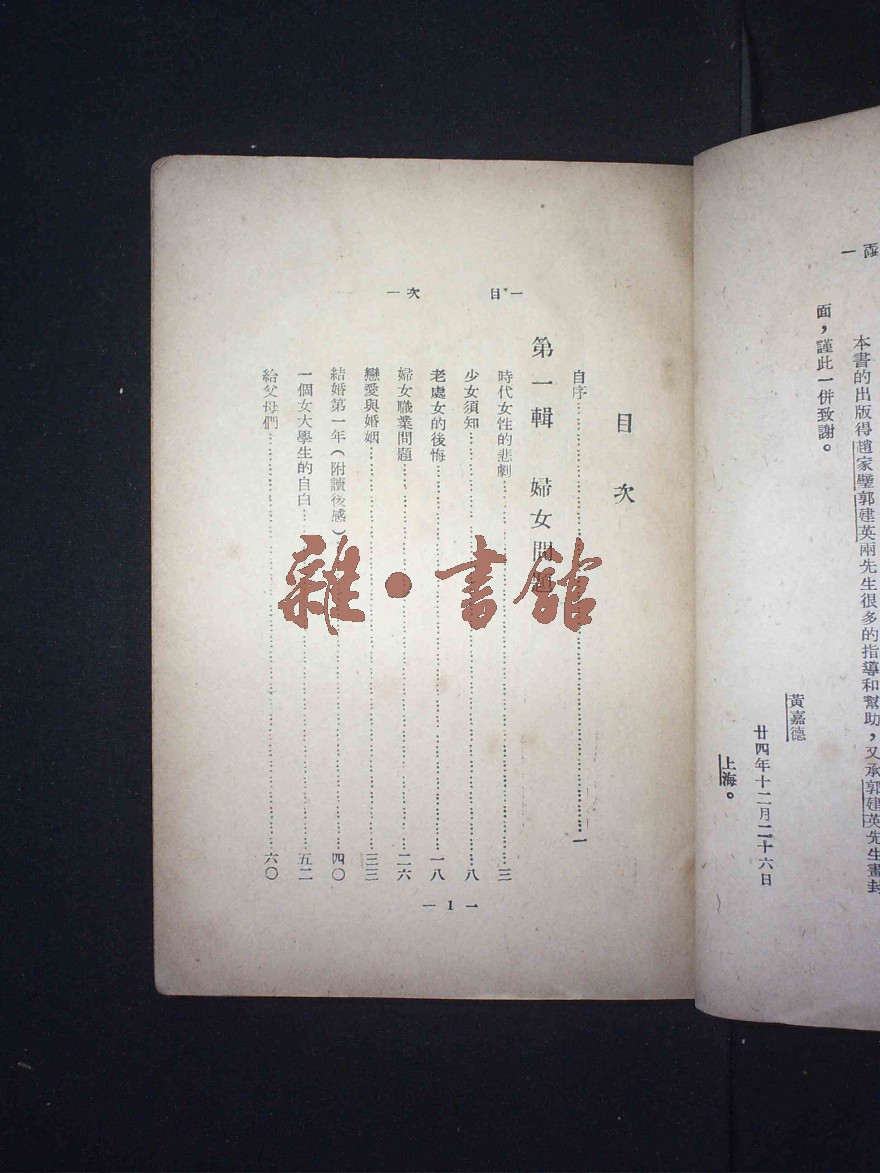 本書的出版得趙家璧郭建英兩先生很多的指導和幫助，又承郭建英先生畫封
面，謹此一併致謝。
黃嘉德
廿四年十二月二十六日
上海。
一目 次一
目次
自序…………一
第一輯 婦女問題
時代女性的悲劇…………三
少女須知…………八
老處女的後悔…………一八
婦女職業問題…………二六
戀愛與婚姻…………三三
結婚第一年（附讀後感）…………四〇
一個女大學生的自白…………五二
給父母們…………六〇
— 1 —
雜·書館